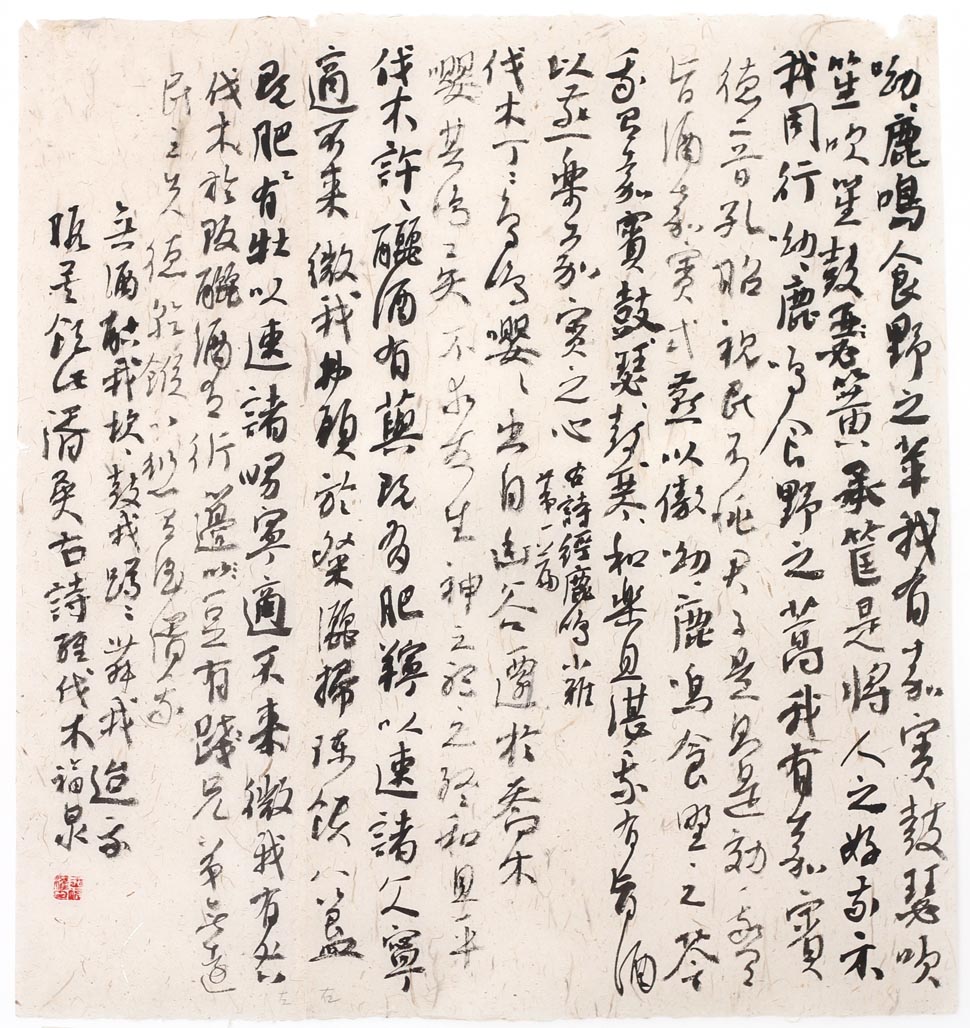 呦〻鹿鳴食野之苹我有嘉賓鼓瑟吹
笙吹笙鼓瑟簧承筐是將人之好我示
我周行呦〻鹿鳴食野之蒿我有嘉賓
德音孔昭視民不恌君子是則是効〻我有
旨酒嘉賓式燕以傲呦〻鹿鳴食野〻之芩
我有嘉賓鼓瑟〻鼓琴〻和樂且湛我有旨酒
以燕樂嘉賓之心
古詩經鹿鳴小雅
第一篇
伐木丁〻鳥鳴嚶〻出自幽谷遷於喬木
嚶其鳴〻矣不求友生神之聽之終和且平
伐木許〻釃酒有藇既有肥羜以速諸父寧
適不來微我弗顧於粲灑掃陳饋八簋
既肥有〻牡以速諸舅寧適不來微我有咎
伐木於阪釃酒有衍籩豆有踐兄弟無遠
民之失德乾餱以愆有酒湑我
無酒酤我坎〻鼓我蹲〻舞我迨我
暇矣飲此湑矣右詩經伐木福泉
左 左